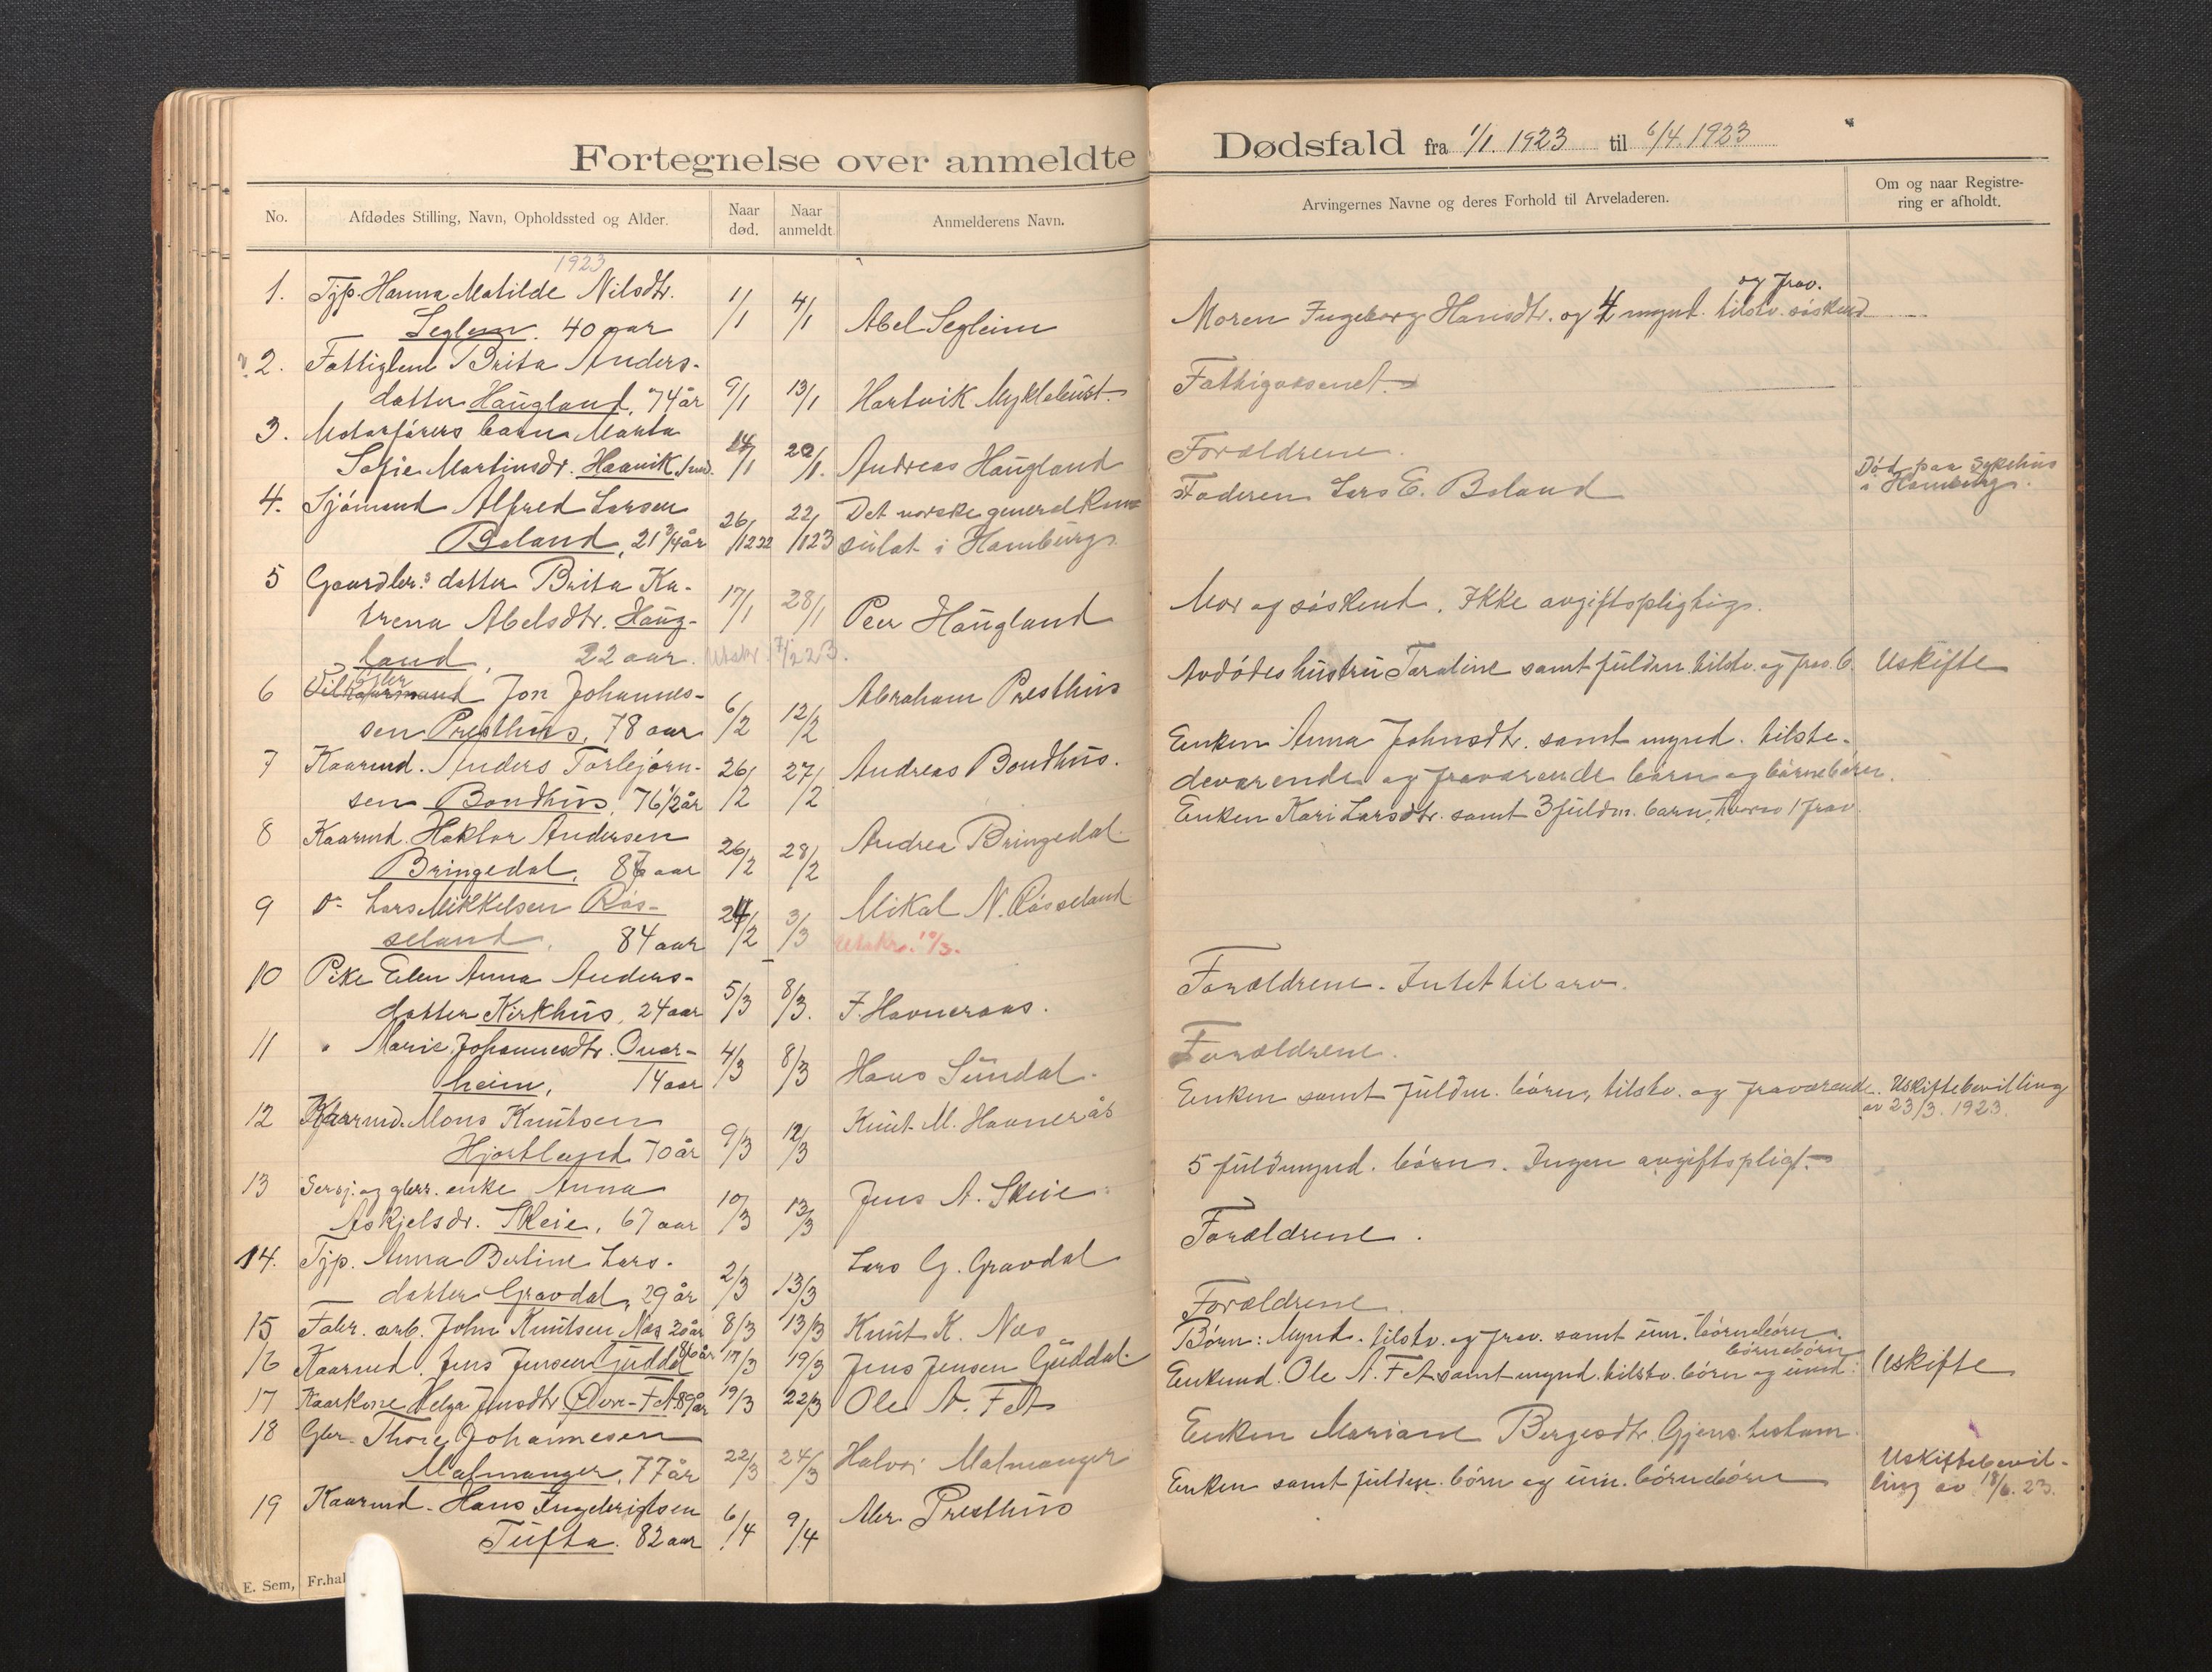 Fortegnelse over anmeldte
No.
Afdødes Stilling, Navn, Opholdssted og Alder.
Naar død.
Naar anmeldt
Anmelderens Navn.
1923
1. Tjp. Hanna Matilde Nilsdtr. 1/1 4/1 Abel Segleim
Seglem. 40 aar
2. Fattiglem Brita Anders-
datter Haugland, 74 år 9/1 13/1 Hartvik Myklebust.
3. Motorførers barn Marta
Sofie Martinsdr. Haavik 14/1 20/1. Andreas Haugland
4. Sjömand Alfred Larsen 26/12 22 22/1 23 Det norske generalkon-
Boland, 21 3/4 år sulat i Hamburg.
5 Gaardbr.s datter Brita Ka-
trena Abelsdtr. Haug- 17/1 28/1 Peer Haugland
land, 22 aar. Utskr. 7/2 23.
6 Jon Johannes- 6/2 12/2 Abraham Presthus
sen Presthus, 78 aar
7 Kaarmd. Anders Torbjørn- 26/2 27/2 Andreas Bondhus.
sen Bondhus, 76 1/2 år
8 Kaarmd. Haktor Andersen 26/2 28/2 Andrea Bringedal
Bringedal, aar
9 Do Lars Mikkelsen Røs- 24/2 3/3 Mikal N. Røsseland
seland, 84 aar Utskr. 10/3.
10 Pike Elen Anna Anders-
datter Kirkhus, 24 aar 5/3 8/3. J. Havneraas.
11 " Marie Johannesdtr. Ovar- 4/3 8/3 Hans Sundal.
heim, 14 aar
12 Kaarmd. Mons Knutsen 9/3 12/3 Knut M. Havnerås
Hjortland 70 år
13 og gbrr. enke Anna 10/3 13/3 Jens A. Skeie.
Askjelsdr. Skeie, 67 aar
14. Tjp. Anna Berline Lars- 2/3 13/3 Lars G. Gravdal
datter Gravdal, 29 år
15 Fabr. arb. John Knutsen Næs 20 år 8/3 13/3 Knut K. Næs
16 Kaarmd. Jens Jensen Guddal 86 år 17/3 19/3 Jens Jensen Guddal.
17 Kaarkone Helga Jensdtr. Øvre-Fet 89 år 19/3 22/3 Ole A. Fet
18 Gbr. Thore Johannesen
Malmanger, 77 år 22/3 24/3 Halvor Malmanger
19 Kaarmd. Hans Ingebrigtsen 6/4 9/4 Abr. Presthus
Tufta. 82 aar
E. Sem, Fr.hal
Dødsfald fra 1/1. 1923 til 6/4. 1923
Arvingernes Navne og deres Forhold til Arveladeren.
Om og naar Registre-
ring er afholdt.
og frav.
Moren Ingeborg Hansdtr. og 4 mynd. tilstv. søskend
Fattigvæsenet
Forældrene.
Faderen Lars E. Boland
Død paa sykehus
i Hamburg.
Mor og søskend. Ikke avgiftspligtig.
Avdødes hustru Taraline samt fuldm. tilstv. og frav. b. Uskifte
Enken Anna Johnsdtr. samt mynd. tilste-
deværende og fraværende børn og børnebørn.
Enken Kari Larsdtr. samt 3 fuldm. barn, hvorav 1 frav.
Forældrene. Intet til arv.
Forældrene.
Enken samt fuldm. børn, tilstv. og fraværende. Uskiftebevilling
av 23/3. 1923.
5 fuldmynd. børn. Ingen avgiftspligt.
Forældrene.
Forældrene.
Børn: Mynd. tilstv. og frav. samt um. børnebørn.
børnebørn
Enkemd. Ole A. Fet samt mynd. tilstv. børn og umd. Uskifte
Enken Mariane Bergesdtr. Gjens. testam.
Enken samt fuldm. børn og um. børnebørn
Uskiftebevil-
ling av 18/6. 23.